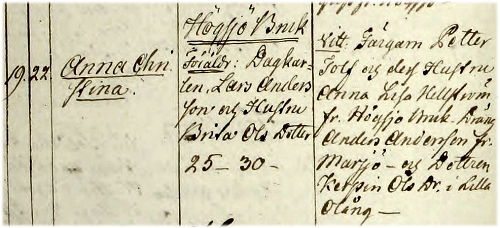 Högsjö Bruk
19. 22. Anna Chri
stina.
Föräldr: Dagkar-
len, Lars Anders
son och Hustru
Brita Ols Dotter
25 - 30 -
Vitt: Färgarn Petter
och dess Hustru
Anna Lisa Hellström
fr. Högsjö Bruk. Dräng
Anders Anderson fr.
Marsjö - och Dottren
Kerstin Ols Dr. i Lilla